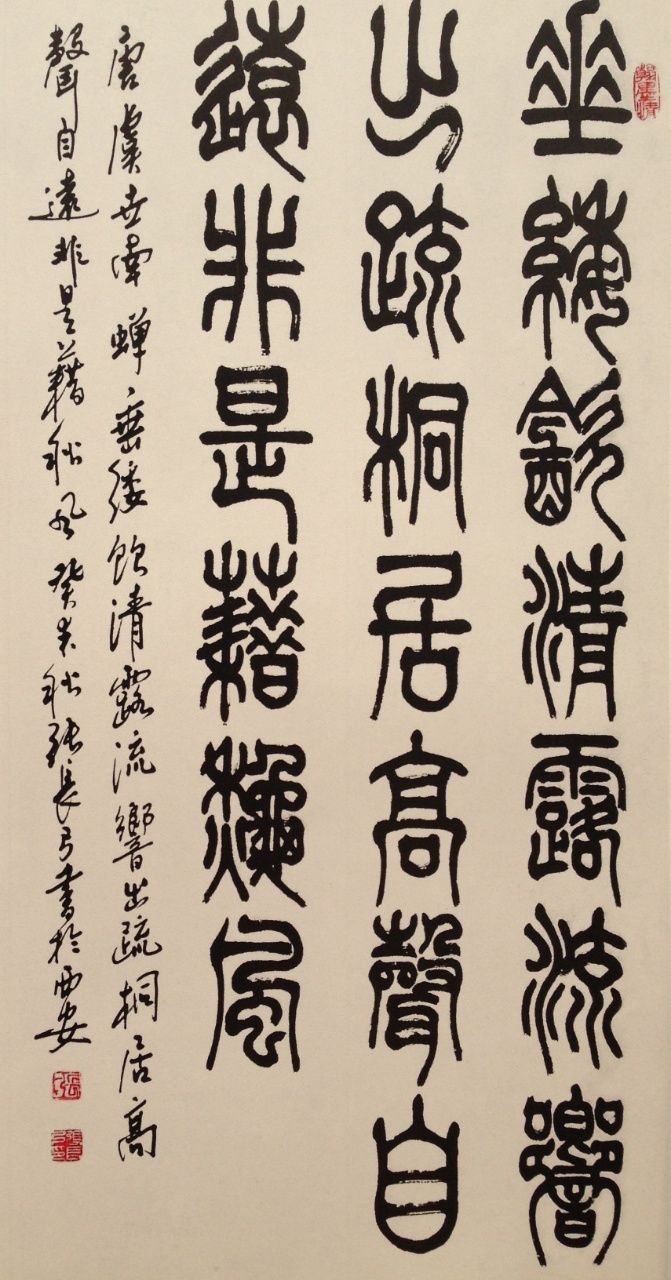 垂緌飲清露流響
出疏桐居高聲自
遠非是藉秋風
唐虞世南蟬垂緌飲清露流響出疏桐居高
聲自遠非是藉秋風癸未秋張長弓書於西安